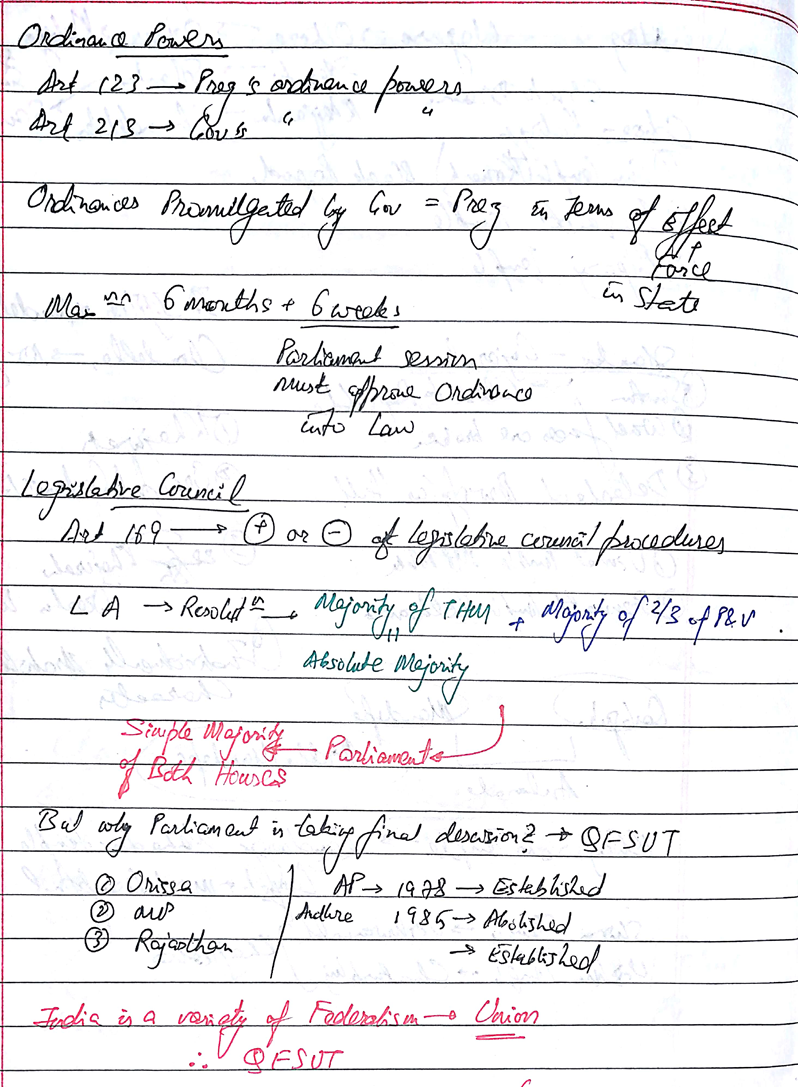 Ordinance Powers
Art 123 → Prez's ordinance powers
Art 213 → Gov's " "
Ordinances Promulgated by Gov = Prez in Terms of Effect
Force
in State
Max^m 6 months + 6 weeks
Parliament session
must approve Ordinance
into Law
Legislative Council
Art 169 → + or - of legislative council procedures
LA → Resolut^n → Majority of THM + Majority of 2/3 of P&V.
Absolute Majority
Simple Majority ← Parliament
of Both Houses
But why Parliament is taking final descision? → QFSUT
① Orissa
②
③ Rajasthan
AP → 1978 → Established
Andhre 1985 → Abolished
→ Established
India is a variety of Federalism → Union
∴ QFSUT